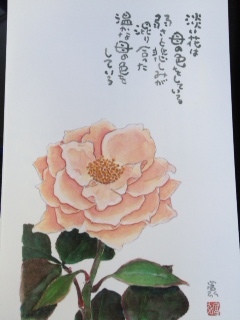 淡い花は
母の色をしている
弱さと悲しみが
混り合った
温かな母の色を
している